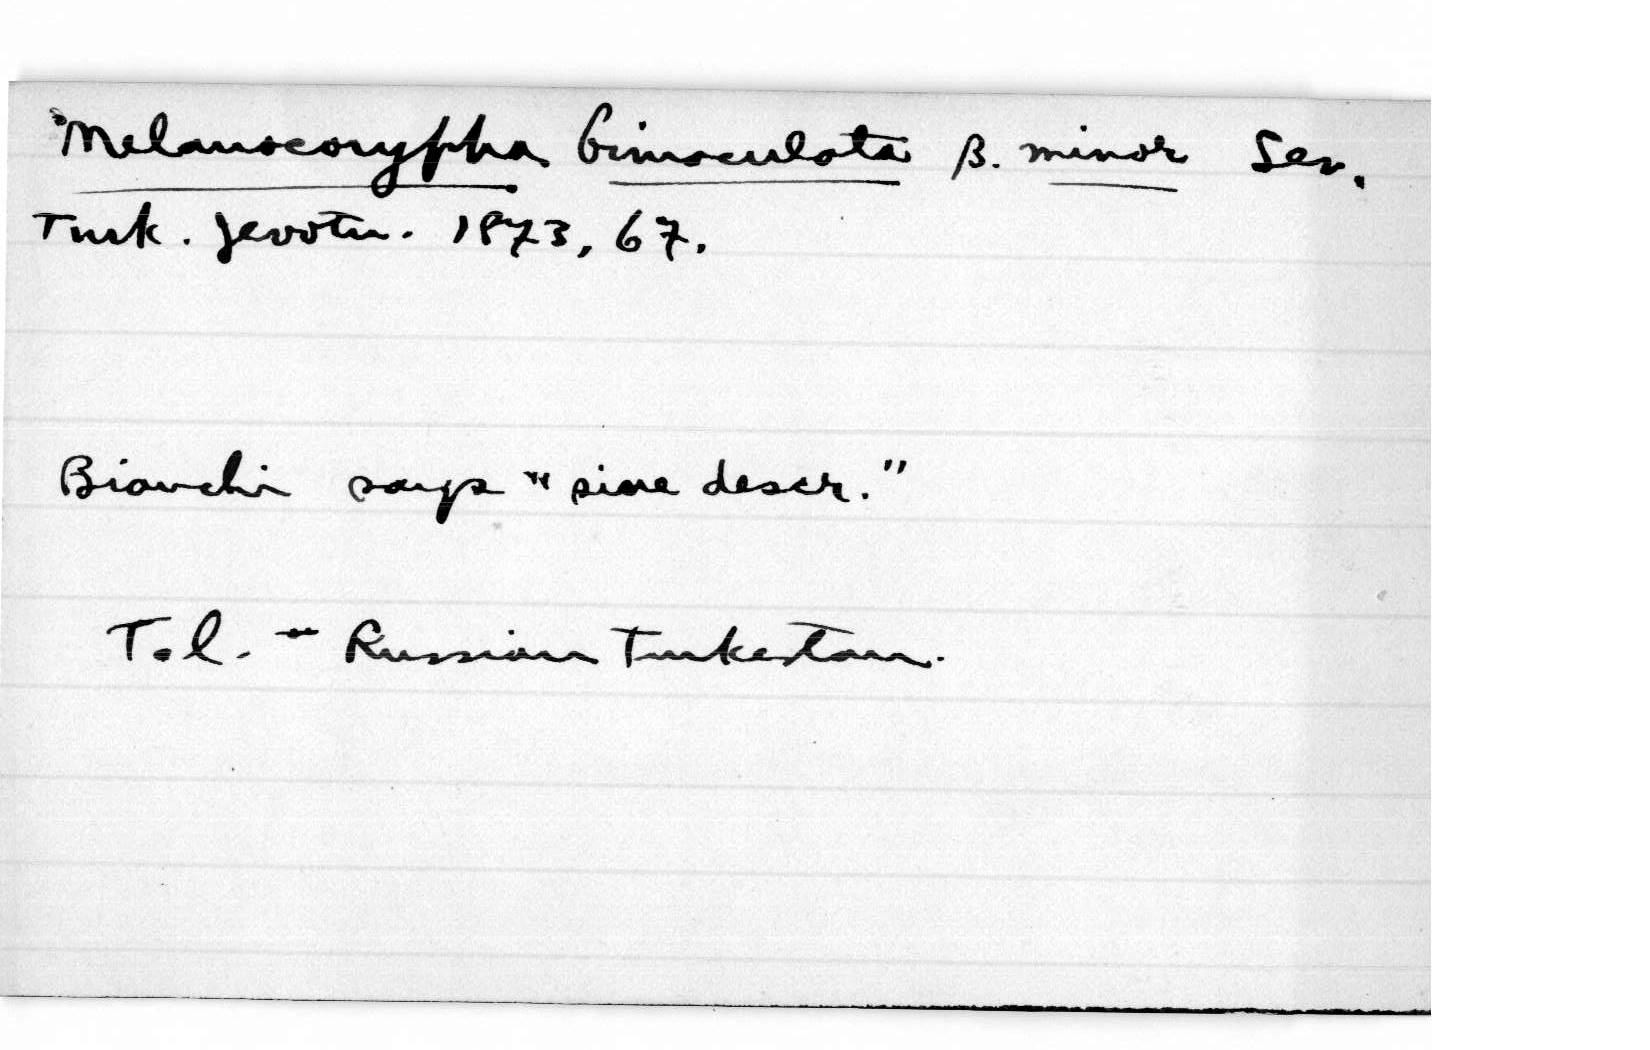 Melanocorypha bimaculata β. minor Sev.
Turk. Jevotn. 1873, 67.
Bianchi says "sine descr."
T.l. - Russian Turkestan.